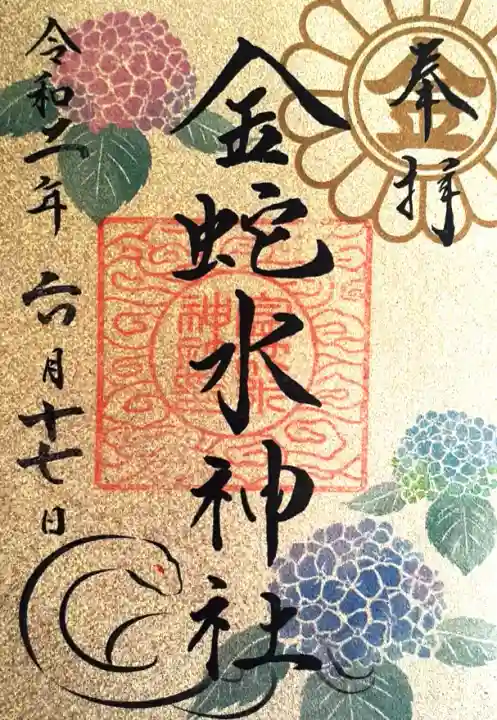 奉拝
金
金蛇水神社
令和二年六月十七日